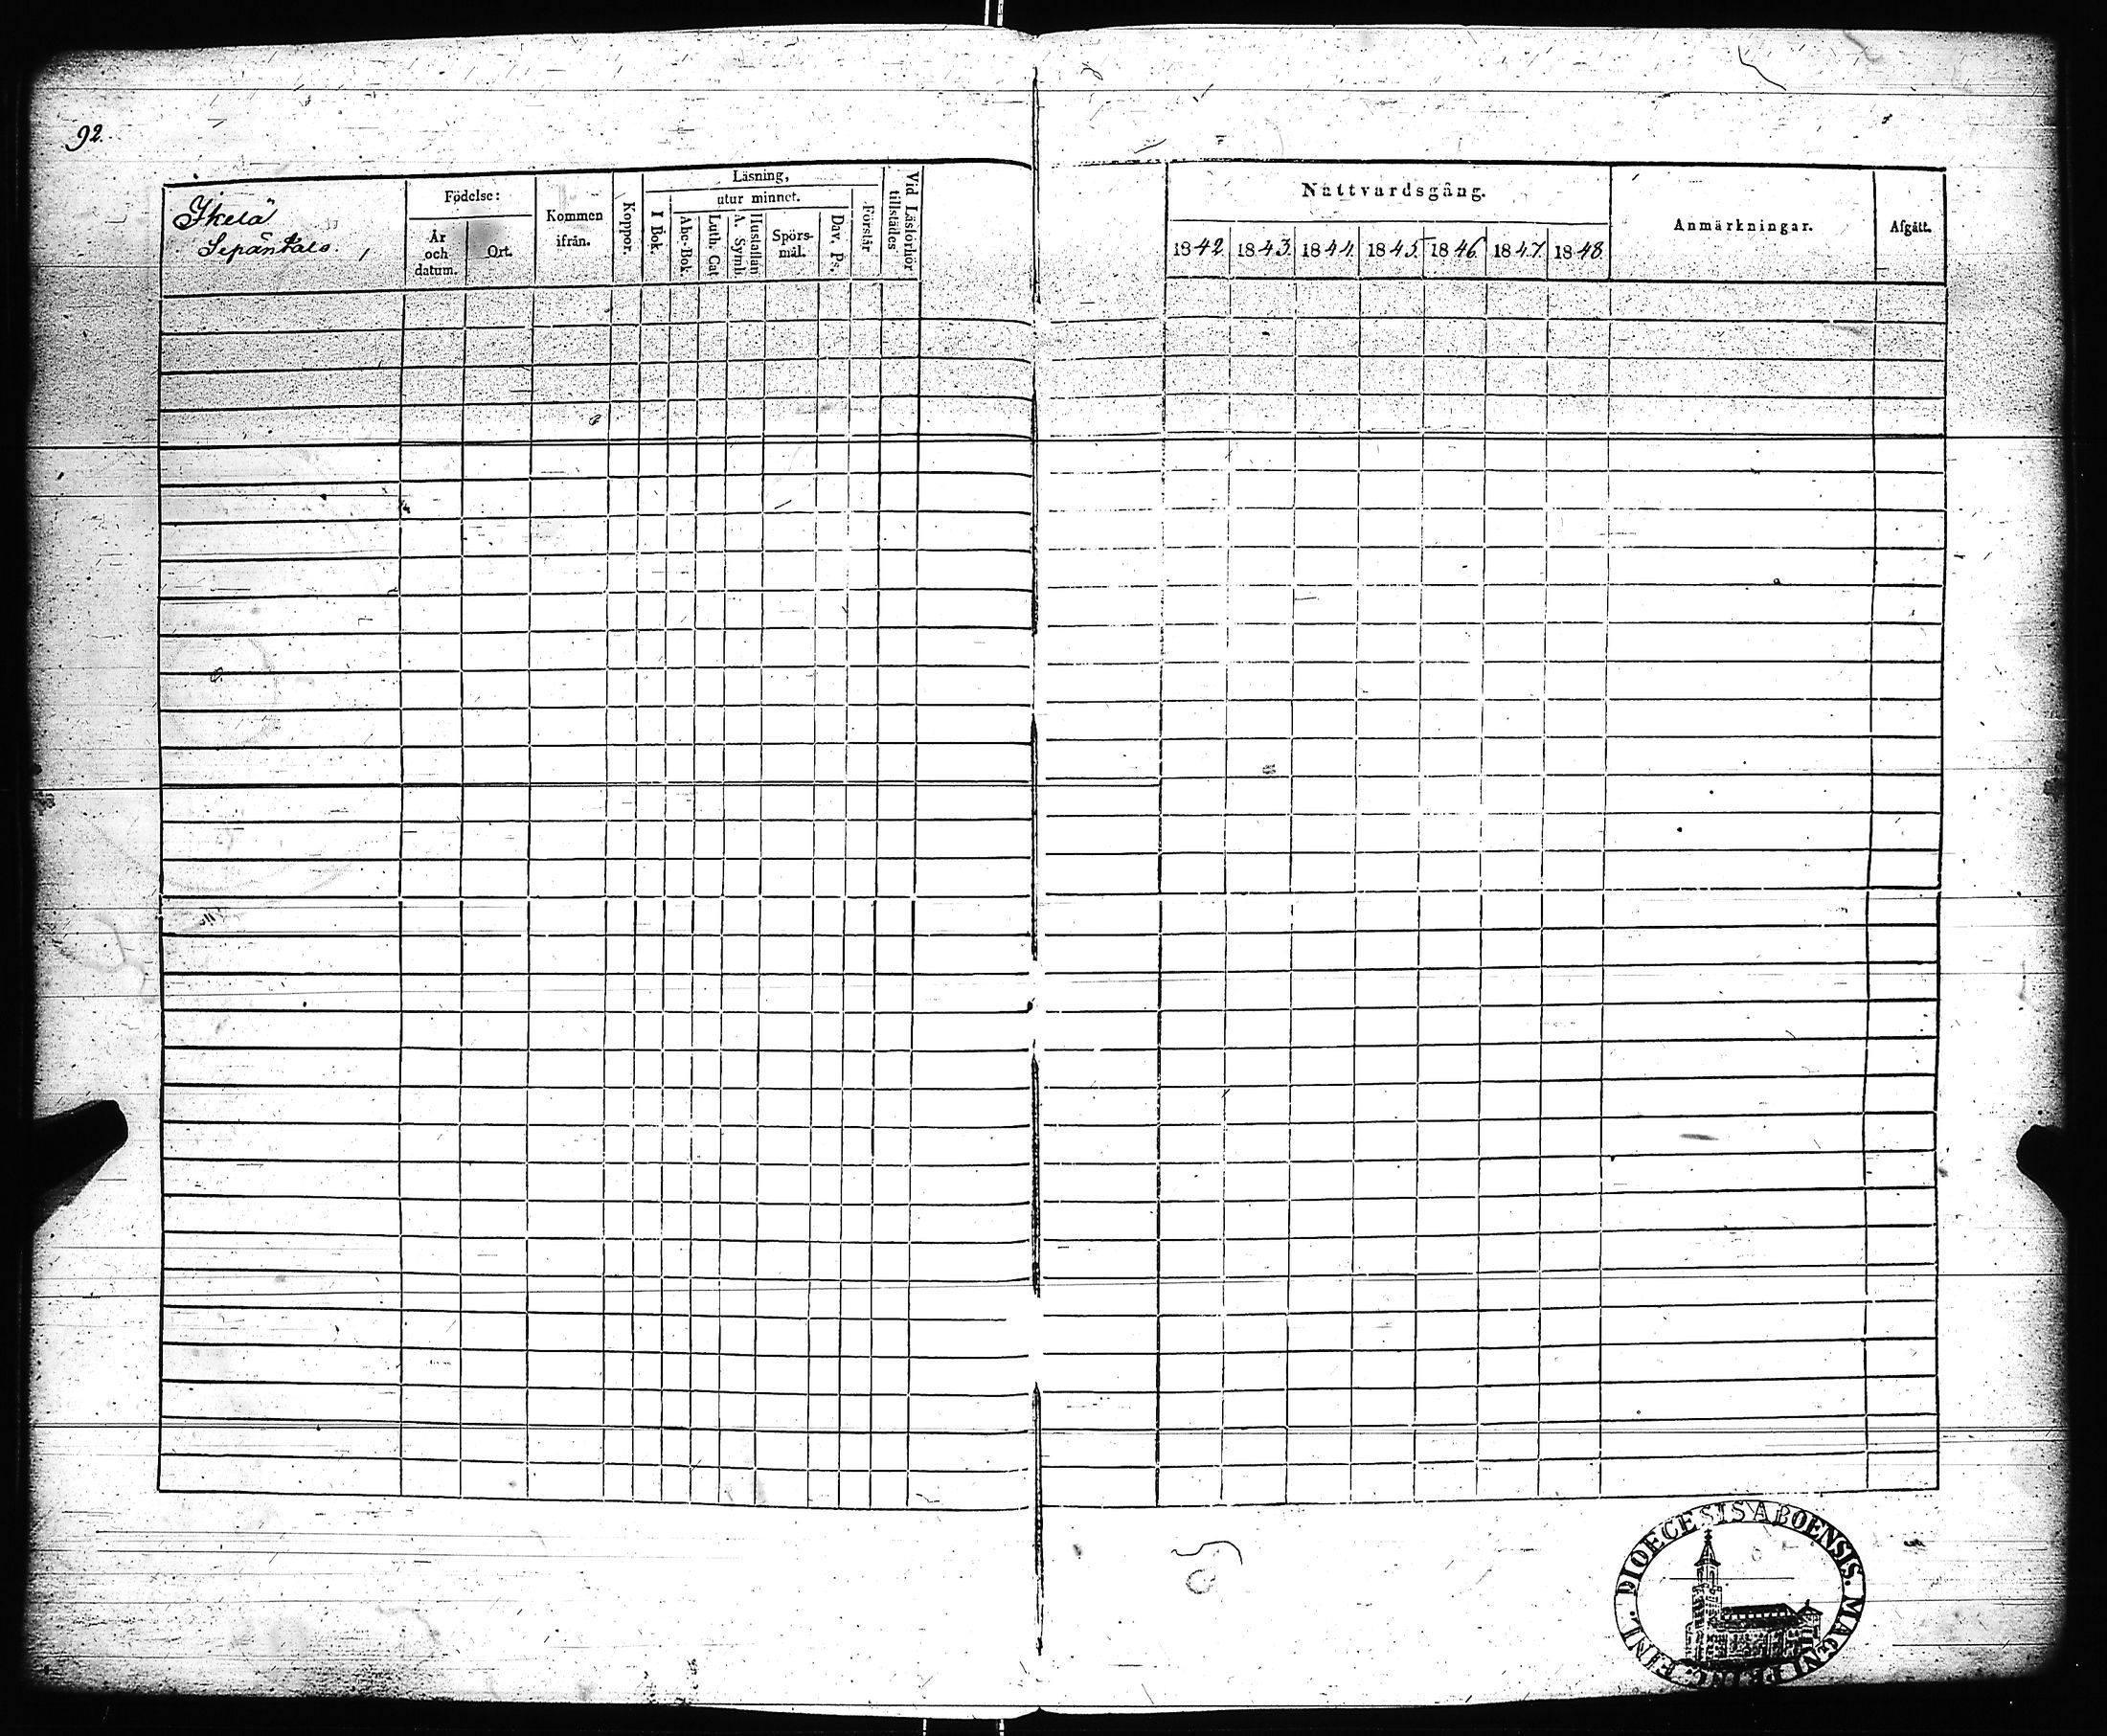 92.
Ikelä
Sepänkalo.
Födelse:
År
och
datum.
Ort.
Kommen
ifrån.
Koppor.
Läsning,
I Bok.
utur minnet.
Abc-Bok.
Luth. Cat
A. Symb.
Hustaflan
Spörs-
mål.
Dav. Ps.
Förstår
Vid Läsförhör
tillstädes
Nattvardsgång.
1842 1843. 1844. 1845. 1846. 1847. 1848
Anmärkningar.
Afgått.
FINL. DIOECESIS ABOENSIS. MAGNI PRINC.